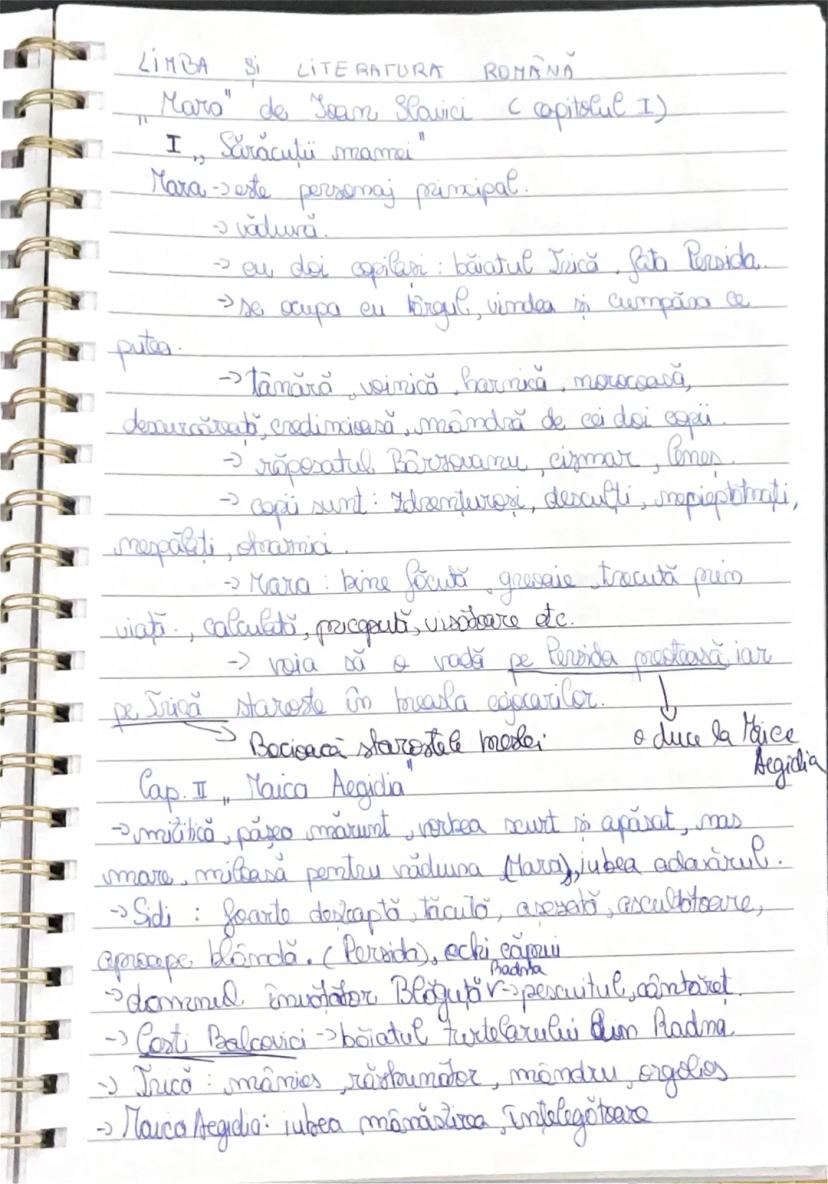 LIMBA ȘI LITERATURA ROMÂNĂ
„Mara" de Ioan Slavici (capitolul I)
I „Sărăcuții mamei"
Mara → este personaj principal.
→ văduvă.
→ cu doi copilași: băiatul Trică, fata Persida.
→ se ocupa cu târgul, vindea și cumpăra ce
putea.
→ tânără, voinică, harnică, norocoasă,
descurcăreață, credincioasă, mândră de cei doi copii.
→ răposatul Bârzovanu, cizmar, leneș.
→ copii sunt: zdrențuroși, desculți, nepieptănați,
nespălați, obraznici.
→ Mara: bine făcută, greoaie, trecută prin
viață., calculată, pricepută, visătoare etc.
→ voia să o vadă pe Persida preoteasă, iar
pe Trică staroste în breasla cojocarilor.
→ Bocioacă starostele breslei
o duce la Maica
Aegidia
Cap. II „Maica Aegidia"
→ mititică, pășea mărunt, vorbea scurt și apăsat, nas
mare, miloasă pentru văduva (Mara), iubea adevărul.
→ Sidi: foarte deșteaptă, tăcută, așezată, ascultătoare,
aproape blândă. (Persida), ochi căprui
Radna
→ domnul învățător Blăguță → pescuitul, cântăreț.
→ Costi Balcovici → băiatul turtelarului din Radna
→ Trică: mânios, răzbunător, mândru, orgolios
→ Maica Aegidia: iubea mănăstirea, înțelegătoare